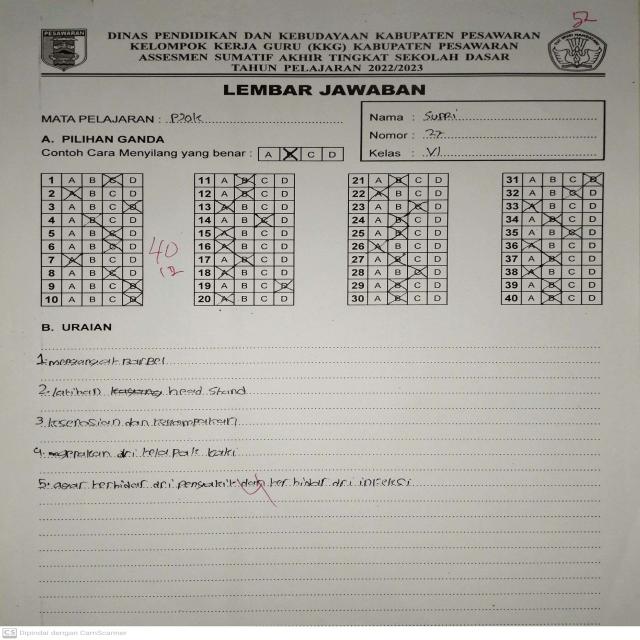 PESAWARAN
52
DINAS PENDIDIKAN DAN KEBUDAYAAN KABUPATEN PESAWARAN
KELOMPOK KERJA GURU (KKG) KABUPATEN PESAWARAN
ASSESMEN SUMATIF AKHIR TINGKAT SEKOLAH DASAR
TAHUN PELAJARAN 2022/2023
LEMBAR JAWABAN
MATA PELAJARAN : PJok
Nama : Supri
Nomor : 27
Kelas : VI
A. PILIHAN GANDA
Contoh Cara Menyilang yang benar : A B C D
1 A B C D 11 A B C D 21 A B C D 31 A B C D
2 A B C D 12 A B C D 22 A B C D 32 A B C D
3 A B C D 13 A B C D 23 A B C D 33 A B C D
4 A B C D 14 A B C D 24 A B C D 34 A B C D
5 A B C D 15 A B C D 25 A B C D 35 A B C D
6 A B C D 16 A B C D 26 A B C D 36 A B C D
7 A B C D 17 A B C D 27 A B C D 37 A B C D
8 A B C D 18 A B C D 28 A B C D 38 A B C D
9 A B C D 19 A B C D 29 A B C D 39 A B C D
10 A B C D 20 A B C D 30 A B C D 40 A B C D
40
12
B. URAIAN
1. mengangkat Barbel
2. latihan head stand
3. keserasian dan kekompakan
4. gerakan dri telapak kaki
5. agar terhidar dri penyakit dan ter hidar dri infeksi
CS Dipindai dengan CamScanner